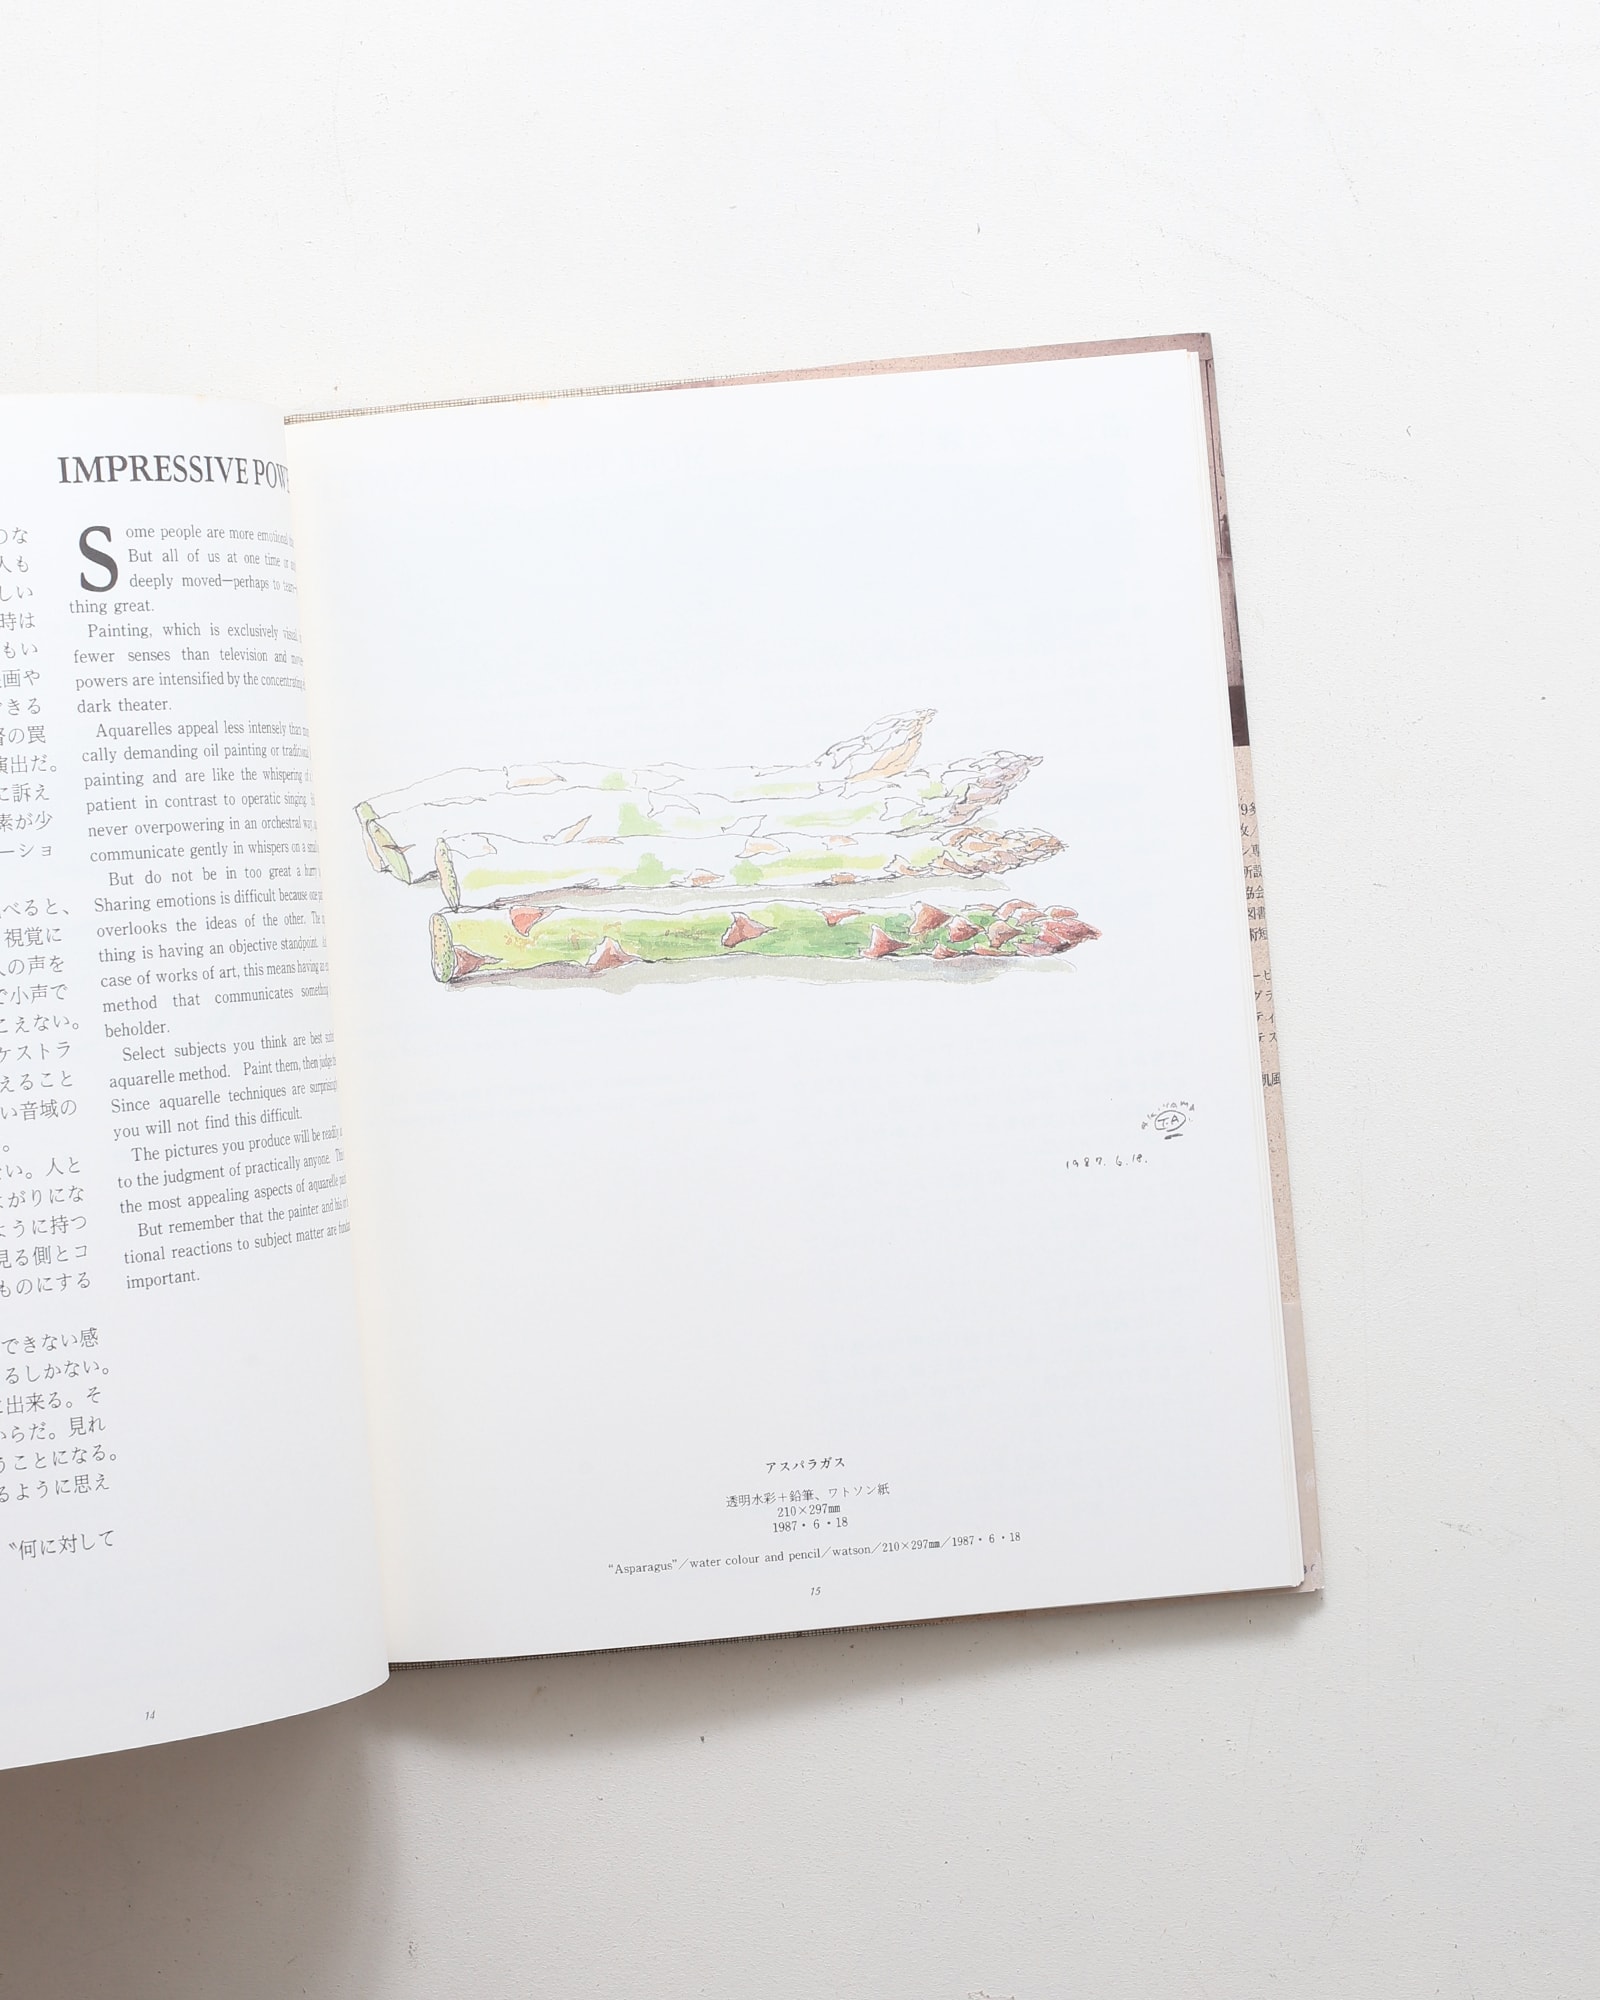 のな
人も
しい
時は
もい
画や
できる
督の罠
演出だ。
に訴え
素が少
ーショ
べると、
視覚に
人の声を
で小声で
こえない。
ケストラ
えること
い音域の
。
ない。人と
上がりにな
ように持つ
見る側とコ
ものにする
できない感
るしかない。
に出来る。そ
からだ。見れ
うことになる。
るように思え
〝何に対して
IMPRESSIVE
Some people are more emotional
But all of us at one time or
deeply moved—perhaps to
thing great.
Painting, which is exclusively
fewer senses than television and
powers are intensified by the
dark theater.
Aquarelles appeal less intensely than
cally demanding oil painting or traditional
painting and are like the whispering of
patient in contrast to operatic singing.
never overpowering in an orchestral
communicate gently in whispers on a
But do not be in too great a hurry
Sharing emotions is difficult because one
overlooks the ideas of the other. The
thing is having an objective standpoint.
case of works of art, this means having
method that communicates something
beholder.
Select subjects you think are best
aquarelle method. Paint them, then judge
Since aquarelle techniques are
you will not find this difficult.
The pictures you produce will be readily
to the judgment of practically anyone.
the most appealing aspects of aquarelle
But remember that the painter and his
tional reactions to subject matter are
important.
14
AKIYAMA
T.A
1987. 6. 18.
アスパラガス
透明水彩＋鉛筆、ワトソン紙
210×297㎜
1987・6・18
“Asparagus”／water colour and pencil／watson／210×297㎜／1987・6・18
15